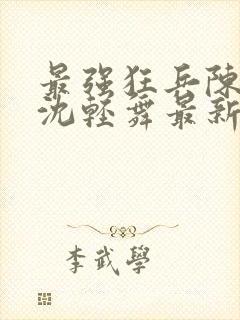 最强狂兵陳
沈轻舞最新
李武學